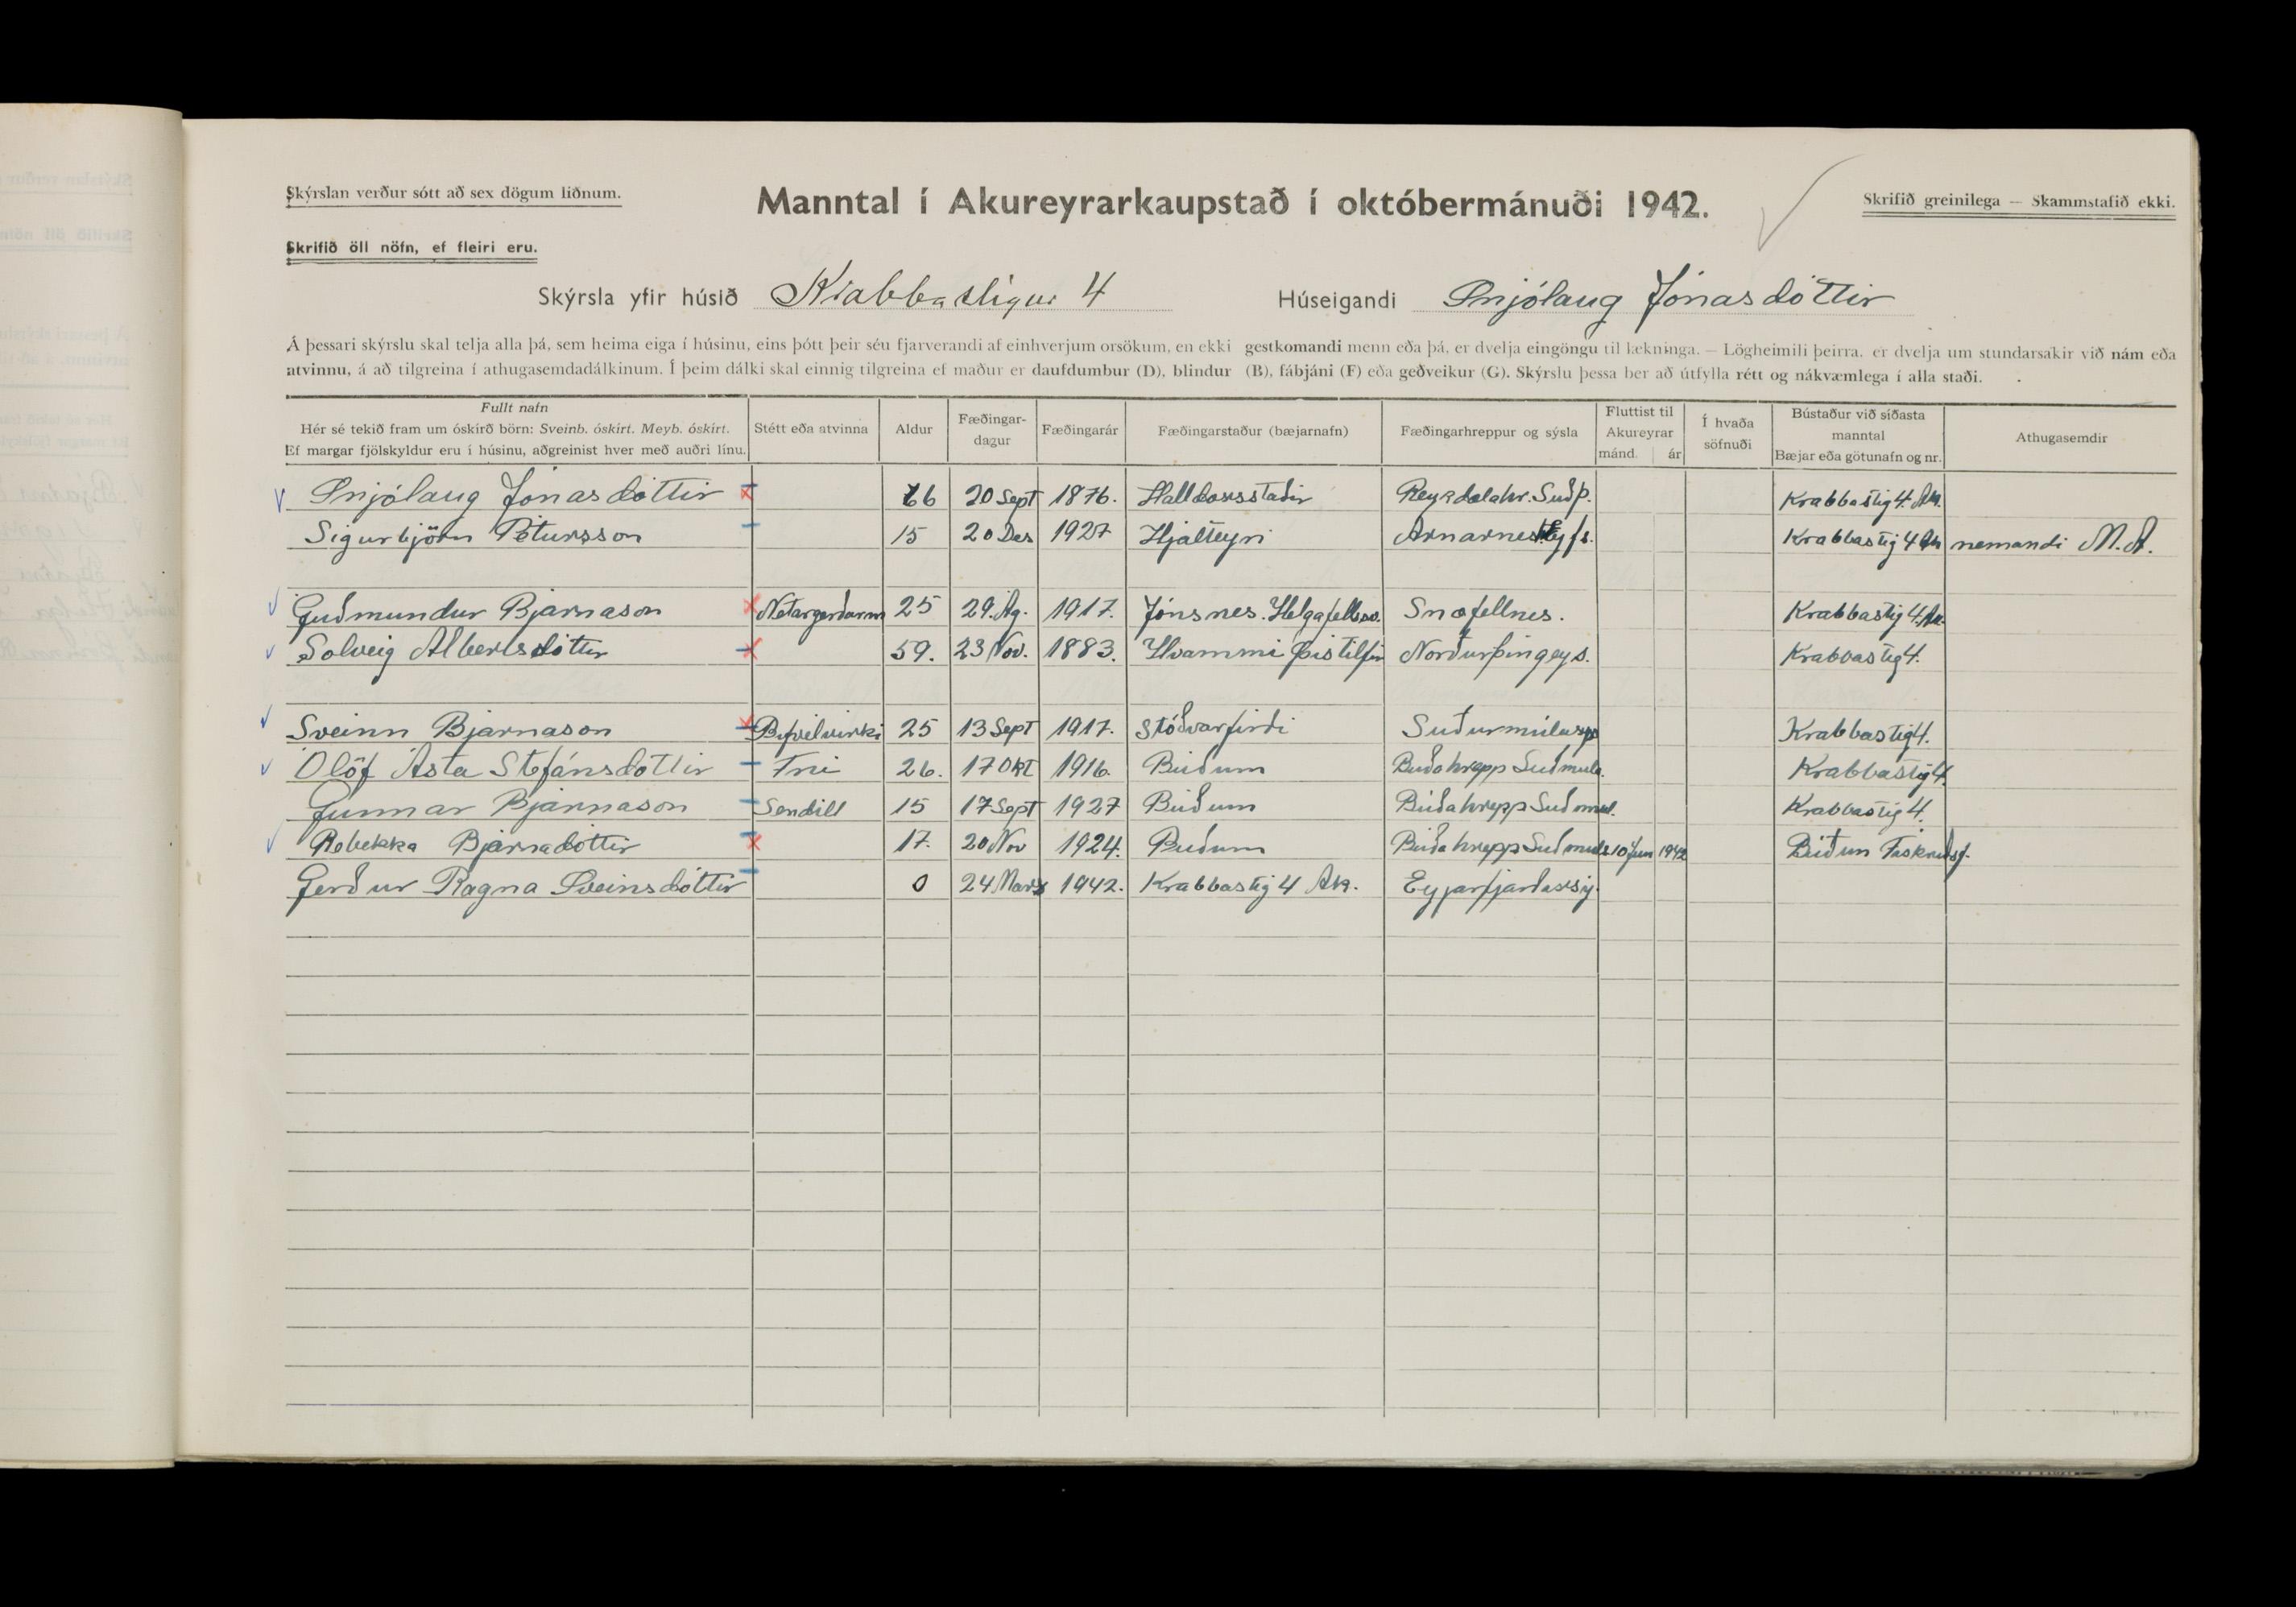 Skýrslan verður sótt að sex dögum liðnum.
Manntal í Akureyrarkaupstað í októbermánuði 1942.
Skrifið greinilega — Skammstafið ekki.
Skrifið öll nöfn, ef fleiri eru.
Skýrsla yfir húsið Krabbastígur 4 Húseigandi Snjólaug Jónasdóttir
Á þessari skýrslu skal telja alla þá, sem heima eiga í húsinu, eins þótt þeir séu fjarverandi af einhverjum orsökum, en ekki gestkomandi menn eða þá, er dvelja eingöngu til lækninga. — Lögheimili þeirra, er dvelja um stundarsakir við nám eða
atvinnu, á að tilgreina í athugasemdadálkinum. Í þeim dálki skal einnig tilgreina ef maður er daufdumbur (D), blindur (B), fábjáni (F) eða geðveikur (G). Skýrslu þessa ber að útfylla rétt og nákvæmlega í alla staði.
Fullt nafn
Hér sé tekið fram um óskírð börn: Sveinb. óskírt. Meyb. óskírt.
Ef margar fjölskyldur eru í húsinu, aðgreinist hver með auðri línu.
Stétt eða atvinna
Aldur
Fæðingar-
dagur
Fæðingarár
Fæðingarstaður (bæjarnafn)
Fæðingarhreppur og sýsla
Fluttist til
Akureyrar
mánd. ár
Í hvaða
söfnuði
Bústaður við síðasta
manntal
Bæjar eða götunafn og nr.
Athugasemdir
Snjólaug Jónasdóttir 66 20 Sept 1876. Halldorsstaðir Reykdalahr. Suðþ. Krabbastig 4. Ak.
Sigurbjörn Pétursson 15 20 Des 1927 Hjalteyri Krabbastig 4 Ak nemandi M.A.
Guðmundur Bjarnason 25 29. Ag. 1917. Jónsnes. Snæfellnes. Krabbastig 4. Ak.
Solveig Albertsdóttir 59. 23 Nov. 1883. Hvammi Þistilfir Norðurþingeys. Krabbastig 4.
Sveinn Bjarnason Bifvelvirki 25 13 Sept 1917. Stöðvarfirði Krabbastig 4.
Ólöf Ásta Stefánsdóttir Frú 26. 17 Okt 1916. Búðum Búðahrepp Suðmula. Krabbastig 4.
Gunnar Bjarnason Sendill 15 17 Sept 1927 Búðum Búðahrepp Suðmul. Krabbastig 4.
Rebekka Bjarnadóttir 17. 20 Nov 1924. Búðum Búðahrepp Suðmula 10 Jun 1942 Búðum
Gerður Ragna Sveinsdóttir 0 24 Mars 1942. Krabbastig 4 Ak. Eyjarfjarðarsy.